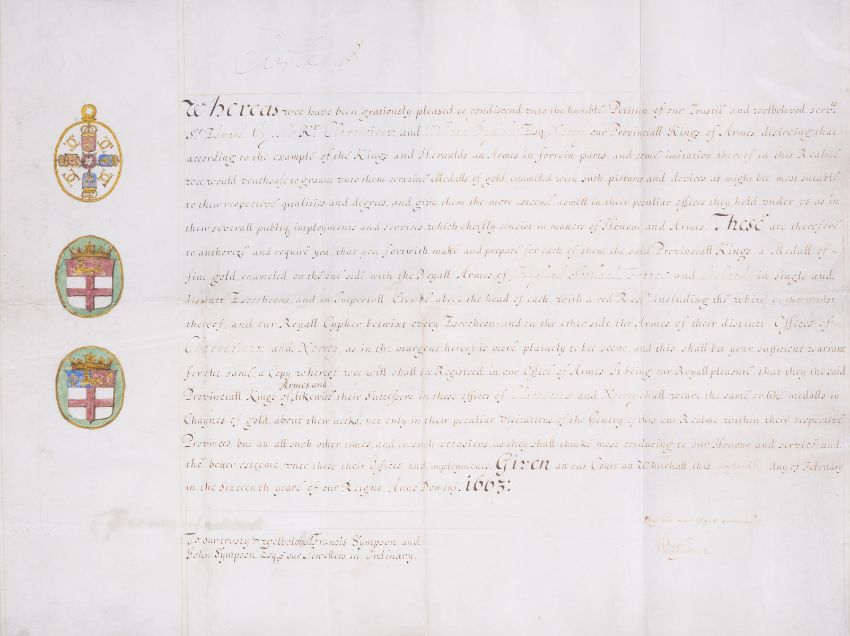 Charles R
Whereas wee have been gratiously pleased to condiscend unto the humble Petition of our Trustie and welbeloved serv.ts
S.r Edward Bysshe K.t Clarenceux and William Dugdale Esq. Norroy, our Provinciall Kings of Armes, desireing that
according to the example of the Kings and Heraulds an Armes in forrein parts and some imitation thereof in this Realme
wee would vouchsafe to graunt unto them certaine Medalls of gold, enameled with such pictures and devices as might bee most suteable
to their respective qualities and degrees, and give them the more esteeme aswell in their peculiar offices they hold under us as in
their severall publiq imployments and services which cheifly consist in maners of Honour and Armes. These are therefore
to authorize and require you, that you fortwith make and prepare for each of them the said Provinciall Kings a Medall of
fine gold, enameled on the one side with the Royall Armes of England Scotland France and Ireland in single and
distinct Escocheons, and an Imperiall Crowne above the head of each with a red Rose including the white in the midst
thereof, and our Royall Cypher betwixt every Escocheon: and on the other side the Armes of their distinct Offices of
Clarenceux and Norroy, as in the margent hereof is more plainely to bee seene, and this shall bee your sufficient warrant
for the same, a Copy whereof wee will shall be Registered in our Office of Armes. It being our Royall pleasure that they the said
Provinciall Kings of Armes and likewise their Successors in these offices of Clarenceux and Norroy shall weare the same or like medalls in
Chaynes of gold about their necks, not only in their peculiar Visitations of the Gentry of this our Realme within their respective
Provinces but an all such other times, and on such occasions, as they shall thinke most conducing to our Honour and service and
the better esteeme unto these their Offices and imployments. Given att our Court att Whitehall this day of February
in the sixteenth yeare of our Reigne, Anno Domini, 1663:
By his
To our trusty & welbeloved Francis Sympson and
John Sympson Esq.s our Jewellers in Ordinary.